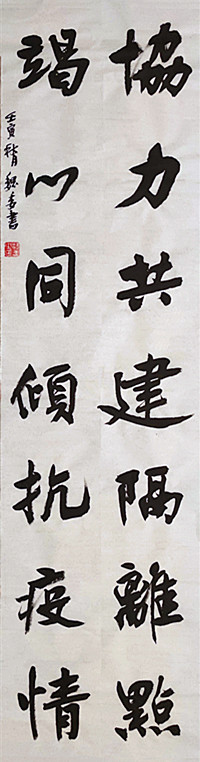 協力共建隔離點
竭心同傾抗疫情
壬寅秋月魏書